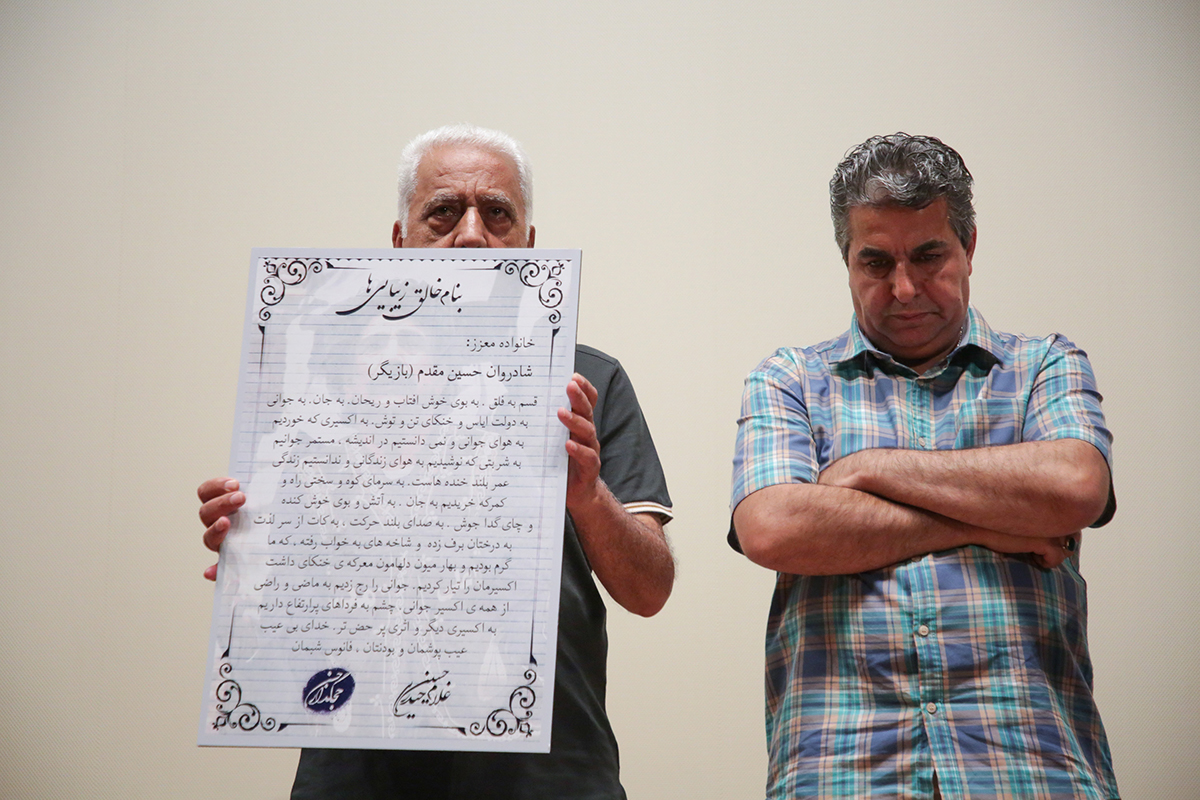 بنام خالق زیبایی ها
خانواده معزز:
شادروان حسین مقدم (بازیگر)
قسم به فلق . به بوی خوش افتاب و ریحان. به جان. به جوانی
به دولت ایاس و خنکای تن و توش. به اکسیری که خوردیم
به هوای جوانی و نمی دانستیم در اندیشه ، مستمر جوانیم
به شربتی که نوشیدیم به هوای زندگانی و ندانستیم زندگی
عمر بلند خنده هاست. به سرمای کوه و سختی راه و
کمرکه خریدیم به جان . به آتش و بوی خوش کنده
و چای گدا جوش . به صدای بلند حرکت ، به کات از سر لذت
به درختان برف زده و شاخه های به خواب رفته ، که ما
گرم بودیم و بهار میون دلهامون معرکه ی خنکای داشت
اکسیرمان را تیار کردیم. جوانی را رج زدیم به ماضی و راضی
از همه ی اکسیر جوانی. چشم به فرداهای پرارتفاع داریم
به اکسیری دیگر و اثری پر حض تر. خدای بی عیب
عیب پوشمان و بودنتان ، فانوس شبمان
غلامحسین